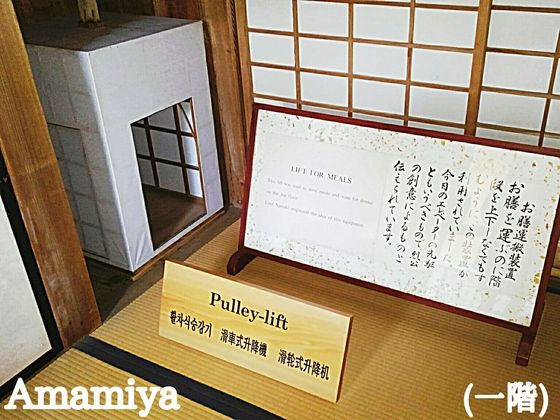 LIFT FOR MEALS
This lift was used to serve meals and wine for dinner
on the 2nd floor.
Lord Nariaki originated the idea of this equipment.
お膳運搬装置
お膳を運ぶのに階
段を上下しなくてもす
むように、この装置が
利用されていました。
今日のエレベーターの先駆
ともいうべきもので、烈公
の創意によるものと
伝えられています。
Pulley-lift
활차식승강기 滑車式升降機 滑轮式升降机
Amamiya
(一階)